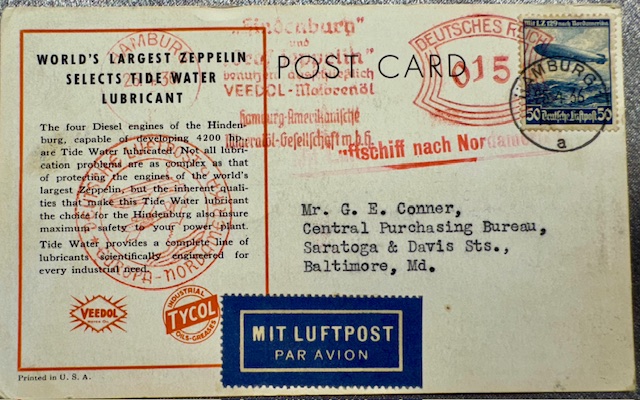 WORLD'S LARGEST ZEPPELIN
SELECTS TIDE WATER
LUBRICANT
The four Diesel engines of the Hinden-
burg, capable of developing 4200 hp.
are Tide Water lubricated. Not all lubri-
cation problems are as complex as that
of protecting the engines of the world's
largest Zeppelin, but the inherent quali-
ties that make this Tide Water lubricant
the choice for the Hindenburg also insure
maximum safety to your power plant.
Tide Water provides a complete line of
lubricants scientifically engineered for
every industrial need.
VEEDOL
INDUSTRIAL
TYCOL
OILS-GREASES
Printed in U. S. A.
HAMBURG
"Hindenburg"
und
"Graf Zeppelin"
benutzen ausschließlich
VEEDOL-Motorenöl
Hamburg-Amerikanische
Mineralöl-Gesellschaft m.b.H.
POST CARD
DEUTSCHES REICH
015
Luftschiff nach Nordame
EUROPA-NORDAME
Mit LZ 129 nach Nordamerika
50 Deutsche Luftpost 50
HAMBURG
a
Mr. G. E. Conner,
Central Purchasing Bureau,
Saratoga & Davis Sts.,
Baltimore, Md.
MIT LUFTPOST
PAR AVION